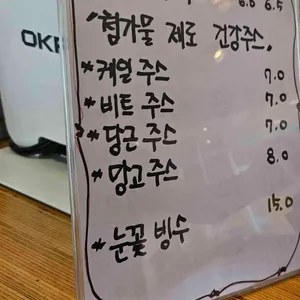 6.0 6.5
"첨가물 제로 건강주스"
OKF
*케일 주스 7.0
*비트 주스 7.0
*당근 주스 7.0
*망고 주스 8.0
*눈꽃 빙수 15.0